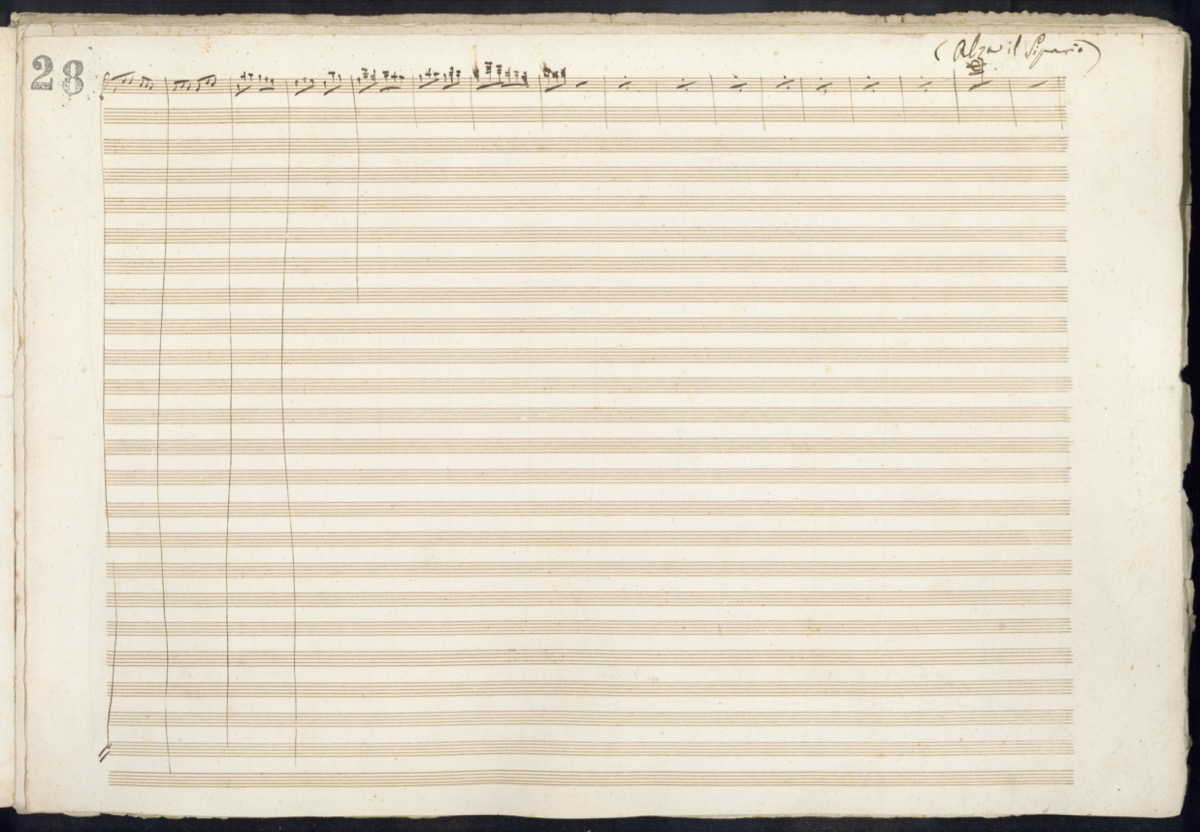 28
(Alza il Sipario)